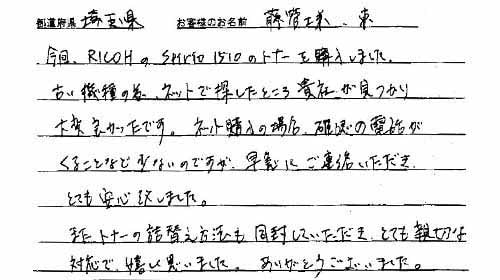 都道府県 埼玉県 お客様のお名前 藤管工様、東
今回、RICOHの Spirio 1510のトナーを購入しました。
古い機種の為、ネットで探したところ貴社が見つかり
大変良かったです。ネット購入の場合、確認の電話が
くることなど少ないのですが、早急にご連絡いただき、
とても安心致しました。
また、トナーの詰替え方法も同封していただき、とても親切な
対応で、嬉しく思いました。ありがとうございました。